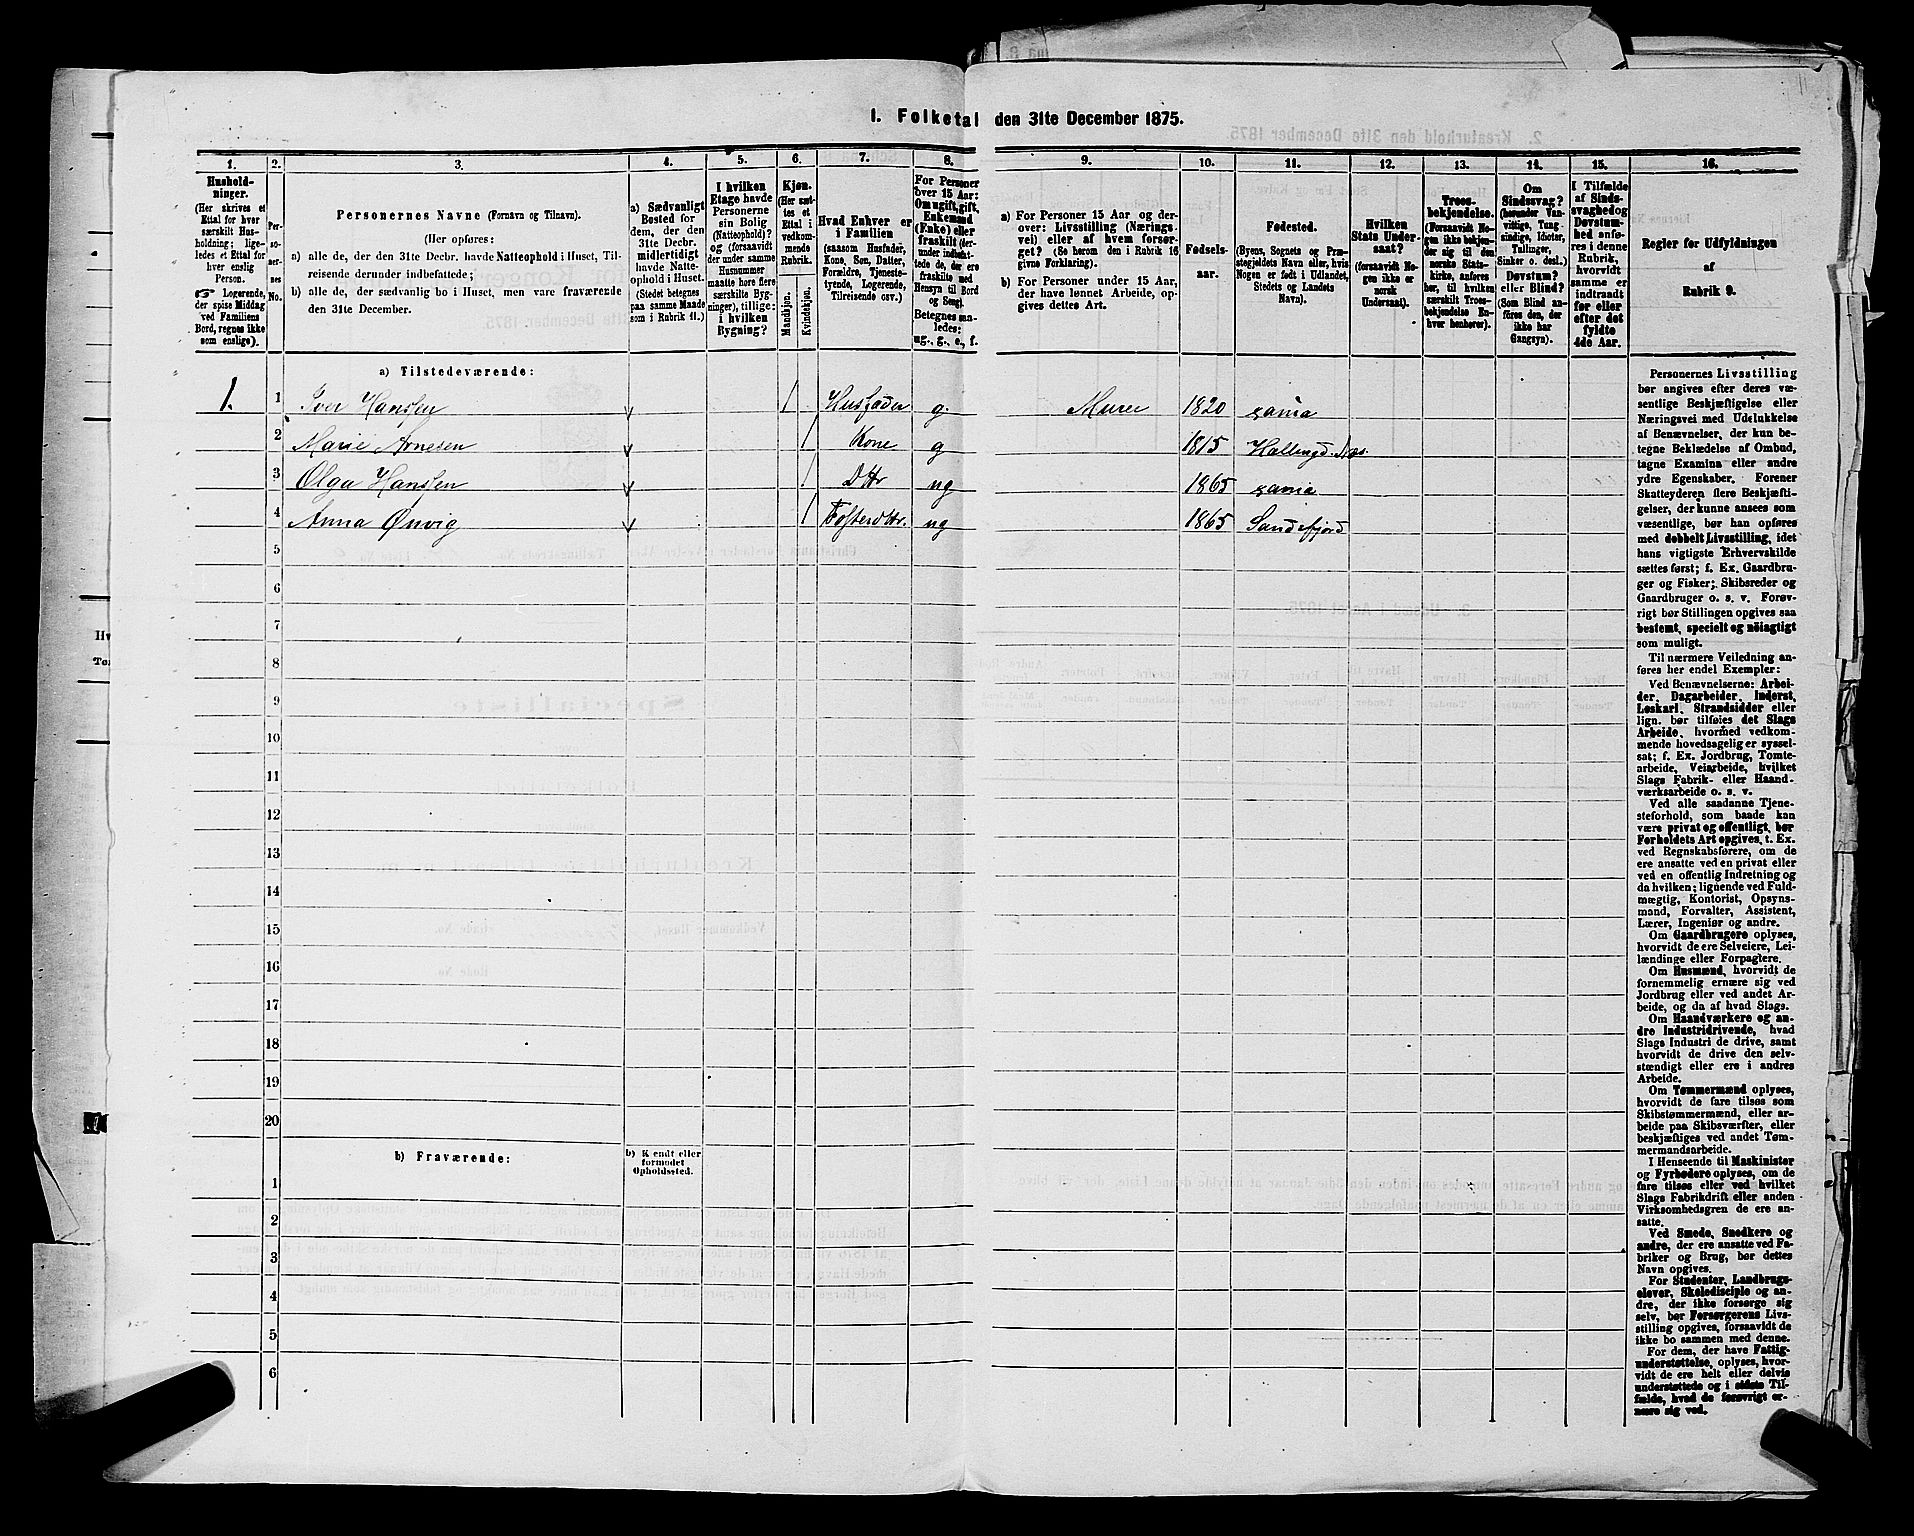 1. Folketal den 31te December 1875.
1. 2. 3. 4. 5. 6. 7. 8. 9. 10. 11. 12. 13. 14. 15. 16.
Hushold-
ninger.
(Her skrives et
Ettal for hver
særskilt Hus-
holdning; lige-
ledes et Ettal for
hver enslig
Person.
☞ Logerende,
der spise Middag
ved Familiens
Bord, regnes ikke
som enslige).
Per-
so-
ner-
nes
No.
Personernes Navne (Fornavn og Tilnavn).
(Her opføres:
a) alle de, der den 31te Decbr. havde Natteophold i Huset, Til-
reisende derunder indbefattede;
b) alle de, der sædvanlig bo i Huset, men vare fraværende
den 31te December.
a) Sædvanligt
Bosted for
dem, der den
31te Decbr.
midlertidigt
havde Natte-
ophold i Huset.
(Stedet betegnes
paa samme Maade
som i Rubrik 11.)
I hvilken
Etage havde
Personerne
sin Bolig
(Natteophold)?
og (forsaavidt
der under samme
Husnummer
maatte høre flere
særskilte Byg-
ninger), tillige:
i hvilken
Bygning?
Kjøn.
(Her sæt-
tes et
Ettal i
vedkom-
mende
Rubrik.
Mandkjøn.
Kvindekjøn.
Hvad Enhver er
i Familien
(saasom Husfader,
Kone, Søn, Datter,
Forældre, Tjeneste-
tyende, Logerende,
Tilreisende osv.)
For Personer
over 15 Aar:
Om ugift, gift,
Enkemand
(Enke) eller
fraskilt (der-
under indbefat-
tede de, der ere
fraskilte med
Hensyn til Bord
og Seng).
Betegnes saa-
ledes:
ug., g., e., f.
a) For Personer 15 Aar og der-
over: Livsstilling (Nærings-
vei) eller af hvem forsør-
get? (Se herom den i Rubrik 16
givne Forklaring).
b) For Personer under 15 Aar,
der have lønnet Arbeide, op-
gives dettes Art.
Fødsels-
aar.
Fødested.
(Byens, Sognets og Præ-
stegjeldets Navn eller, hvis
Nogen er født i Udlandet,
Stedets og Landets
Navn).
Hvilken
Stats Under-
saat?
(forsaavidt No-
gen ikke er
norsk
Undersaat).
Troes-
bekjendelse.
(Forsaavidt No-
gen ikke bekjen-
der sig til den
norske Stats-
kirke, anføres
her, til hvilken
særskilt Troes-
bekjendelse En-
hver henhører).
Om
Sindssvag?
(herunder Van-
vittige, Tung-
sindige, Idioter,
Tullinger,
Sinker o. desl.)
Døvstum?
eller Blind?
(Som Blind an-
føres den, der
ikke har
Gangsyn).
I Tilfælde
af Sinds-
svaghed og
Døvstum-
hed anfø-
res i denne
Rubrik,
hvorvidt
samme er
indtraadt
før eller
efter det
fyldte
4de Aar.
Regler for Udfyldningen
af
Rubrik 9.
a) Tilstedeværende:
1. 1 Iver Hansen 1 Husfader g. Murer 1820 χania
2 Marie Arnesen 1 Kone g 1815 Hallingd. Næs.
3 Olga Hansen 1 Dttr ug 1865 χania
4 Anna Ønvig 1 Fosterdttr. ug 1865 Sandefjord
5
6
7
8
9
10
11
12
13
14
15
16
17
18
19
20
b) Fraværende:
b) Kjendt eller
formodet
Opholdssted.
1
2
3
4
5
6
Personernes Livsstilling
bør angives efter deres væ-
sentlige Beskjæftigelse eller
Næringsvei med Udelukkelse
af Benævnelser, der kun be-
tegne Beklædelse af Ombud,
tagne Examina eller andre
ydre Egenskaber. Forener
Skatteyderen flere Beskjæfti-
gelser, der kunne ansees som
væsentlige, bør han opføres
med dobbelt Livsstilling, idet
hans vigtigste Erhvervskilde
sættes først; f. Ex. Gaardbru-
ger og Fisker; Skibsreder og
Gaardbruger o. s. v. Forøv-
rigt bør Stillingen opgives saa
bestemt, specielt og nøiagtigt
som muligt.
Til nærmere Veiledning an-
føres her endel Exempler:
Ved Benævnelserne: Arbei-
der, Dagarbeider, Inderst,
Løskarl, Strandsidder eller
lign. bør tilføies det Slags
Arbeide, hvormed vedkom-
mende hovedsagelig er syssel-
sat; f. Ex. Jordbrug, Tomte-
arbeide, Veiarbeide, hvilket
Slags Fabrik- eller Haand-
værksarbeide o. s. v.
Ved alle saadanne Tjene-
steforhold, som baade kan
være privat og offentligt, bør
Forholdets Art opgives, t. Ex.
ved Regnskabsførere, om de
ere ansatte ved en privat eller
ved en offentlig Indretning og
da hvilken; lignende ved Fuld-
mægtig, Kontorist, Opsyns-
mand, Forvalter, Assistent,
Lærer, Ingeniør og andre.
Om Gaardbrugere oplyses,
hvorvidt de ere Selveiere, Lei-
lændinge eller Forpagtere.
Om Husmænd, hvorvidt de
fornemmelig ernære sig ved
Jordbrug eller ved andet Ar-
beide, og da af hvad Slags.
Om Haandværkere og an-
dre Industridrivende, hvad
Slags Industri de drive, samt
hvorvidt de drive den selv-
stændigt eller ere i andres
Arbeide.
Om Tømmermænd oplyses,
hvorvidt de fare tilsøs som
Skibstømmermænd, eller ar-
beide paa Skibsværfter, eller
beskjæftiges ved andet Tøm-
mermandsarbeide.
I Henseende til Maskinister
og Fyrbødere oplyses, om de
fare tilsøs eller ved hvilket
Slags Fabrikdrift eller anden
Virksomhedsgren de ere an-
satte.
Ved Smede, Snedkere og
andre, der ere ansatte ved Fa-
briker og Brug, bør dettes
Navn opgives.
For Studenter, Landbrugs-
elever, Skoledisciple og an-
dre, der ikke forsørge sig
selv, bør Forsørgerens Livs-
stilling opgives, forsaavidt de
ikke bo sammen med denne.
For dem, der have Fattig-
understøttelse, oplyses, hvor-
vidt de ere helt eller delvis
understøttede og i sidste Til-
fælde, hvad de forøvrigt er-
nære sig ved.